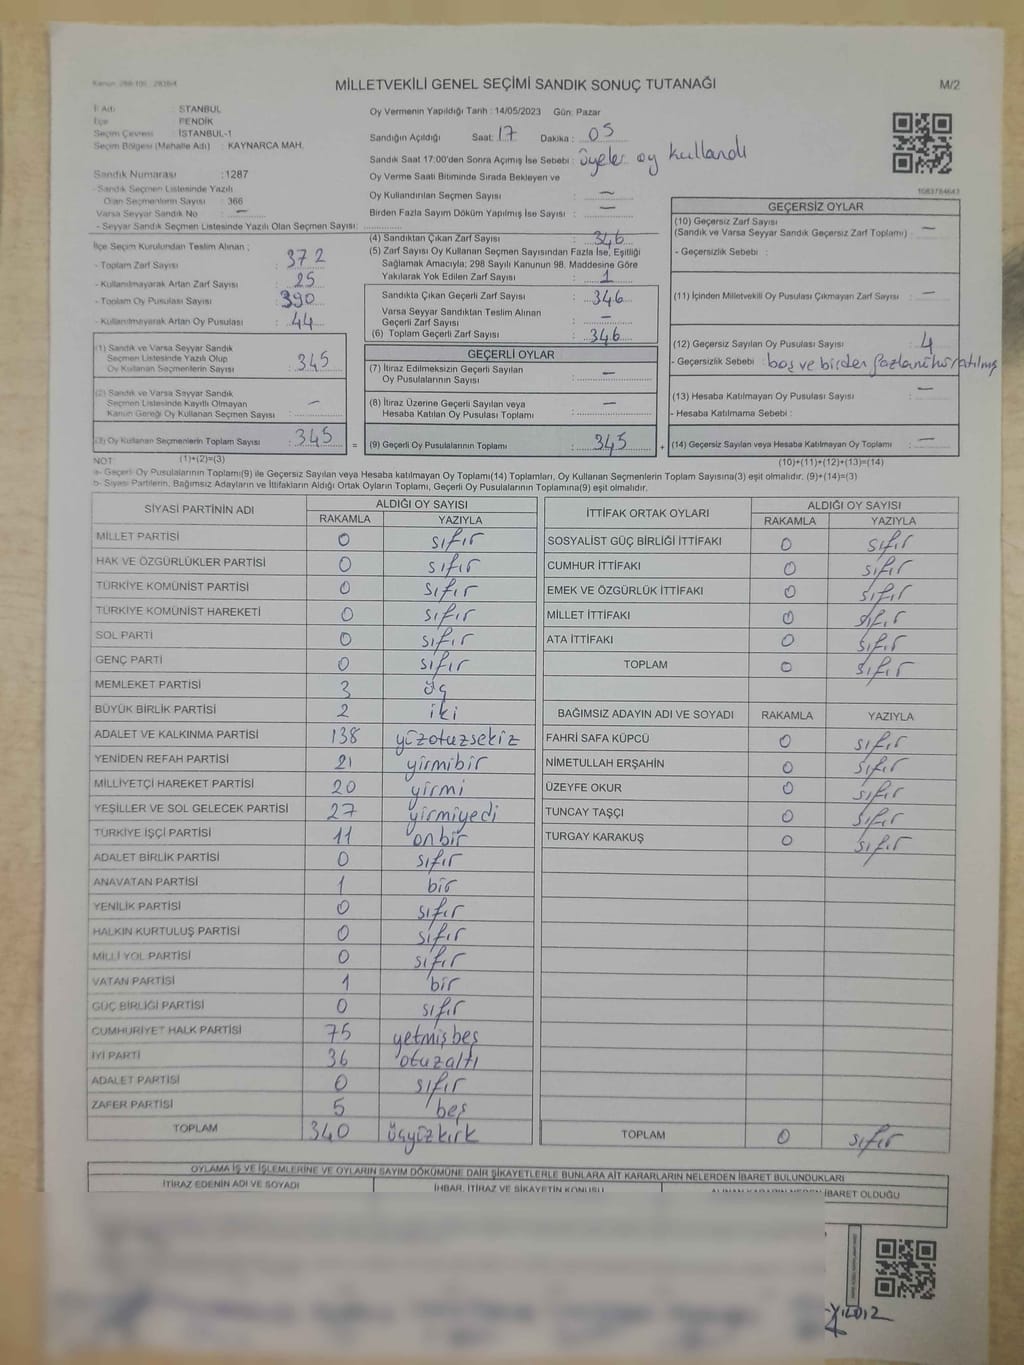 MİLLETVEKİLİ GENEL SEÇİMİ SANDIK SONUÇ TUTANAĞI
M/2
İl Adı : İSTANBUL
İlçe : PENDİK
Seçim Çevresi : İSTANBUL-1
Seçim Bölgesi (Mahalle Adı) : KAYNARCA MAH.
Sandık Numarası :1287
- Sandık Seçmen Listesinde Yazılı
Olan Seçmenlerin Sayısı : 366
Varsa Seyyar Sandık No : —
- Seyyar Sandık Seçmen Listesinde Yazılı Olan Seçmen Sayısı:
Oy Vermenin Yapıldığı Tarih : 14/05/2023 Gün: Pazar
Sandığın Açıldığı Saat: 17 Dakika : 05
Sandık Saat 17:00'den Sonra Açımış İse Sebebi : üyeler oy kullandı
Oy Verme Saati Bitiminde Sırada Bekleyen ve
Oy Kullandırılan Seçmen Sayısı : —
Birden Fazla Sayım Döküm Yapılmış İse Sayısı : —
1083784647
İlçe Seçim Kurulundan Teslim Alınan ;
- Toplam Zarf Sayısı : 372
- Kullanılmayarak Artan Zarf Sayısı : 25
- Toplam Oy Pusulası Sayısı : 390
- Kullanılmayarak Artan Oy Pusulası : 44
(1) Sandık ve Varsa Seyyar Sandık
Seçmen Listesinde Yazılı Olup
Oy Kullanan Seçmenlerin Sayısı : 345
(2) Sandık ve Varsa Seyyar Sandık
Seçmen Listesinde Kayıtlı Olmayan
Kanun Gereği Oy Kullanan Seçmen Sayısı : —
(3) Oy Kullanan Seçmenlerin Toplam Sayısı : 345 =
(4) Sandıktan Çıkan Zarf Sayısı : 346
(5) Zarf Sayısı Oy Kullanan Seçmen Sayısından Fazla İse, Eşitliği
Sağlamak Amacıyla; 298 Sayılı Kanunun 98. Maddesine Göre
Yakılarak Yok Edilen Zarf Sayısı : 1
Sandıkta Çıkan Geçerli Zarf Sayısı : 346
Varsa Seyyar Sandıktan Teslim Alınan
Geçerli Zarf Sayısı : —
(6) Toplam Geçerli Zarf Sayısı : 346
GEÇERLİ OYLAR
(7) İtiraz Edilmeksizin Geçerli Sayılan
Oy Pusulalarının Sayısı : —
(8) İtiraz Üzerine Geçerli Sayılan veya
Hesaba Katılan Oy Pusulası Toplamı : —
(9) Geçerli Oy Pusulalarının Toplamı : 345 +
GEÇERSİZ OYLAR
(10) Geçersiz Zarf Sayısı
(Sandık ve Varsa Seyyar Sandık Geçersiz Zarf Toplamı) : —
- Geçersizlik Sebebi :
(11) İçinden Milletvekili Oy Pusulası Çıkmayan Zarf Sayısı : —
(12) Geçersiz Sayılan Oy Pusulası Sayısı : 4
- Geçersizlik Sebebi : boş ve birden fazla
(13) Hesaba Katılmayan Oy Pusulası Sayısı : —
- Hesaba Katılmama Sebebi :
(14) Geçersiz Sayılan veya Hesaba Katılmayan Oy Toplamı : —
NOT: (1)+(2)=(3)
(10)+(11)+(12)+(13)=(14)
a- Geçerli Oy Pusulalarının Toplamı(9) ile Geçersiz Sayılan veya Hesaba katılmayan Oy Toplamı(14) Toplamları, Oy Kullanan Seçmenlerin Toplam Sayısına(3) eşit olmalıdır. (9)+(14)=(3)
b- Siyasi Partilerin, Bağımsız Adayların ve İttifakların Aldığı Ortak Oyların Toplamı, Geçerli Oy Pusulalarının Toplamına(9) eşit olmalıdır.
SİYASİ PARTİNİN ADI ALDIĞI OY SAYISI
RAKAMLA YAZIYLA
MİLLET PARTİSİ 0 sıfır
HAK VE ÖZGÜRLÜKLER PARTİSİ 0 sıfır
TÜRKİYE KOMÜNİST PARTİSİ 0 sıfır
TÜRKİYE KOMÜNİST HAREKETİ 0 sıfır
SOL PARTİ 0 sıfır
GENÇ PARTİ 0 sıfır
MEMLEKET PARTİSİ 3 üç
BÜYÜK BİRLİK PARTİSİ 2 iki
ADALET VE KALKINMA PARTİSİ 138 yüzotuzsekiz
YENİDEN REFAH PARTİSİ 21 yirmibir
MİLLİYETÇİ HAREKET PARTİSİ 20 yirmi
YEŞİLLER VE SOL GELECEK PARTİSİ 27 yirmiyedi
TÜRKİYE İŞÇİ PARTİSİ 11 onbir
ADALET BİRLİK PARTİSİ 0 sıfır
ANAVATAN PARTİSİ 1 bir
YENİLİK PARTİSİ 0 sıfır
HALKIN KURTULUŞ PARTİSİ 0 sıfır
MİLLİ YOL PARTİSİ 0 sıfır
VATAN PARTİSİ 1 bir
GÜÇ BİRLİĞİ PARTİSİ 0 sıfır
CUMHURİYET HALK PARTİSİ 75 yetmişbeş
İYİ PARTİ 36 otuzaltı
ADALET PARTİSİ 0 sıfır
ZAFER PARTİSİ 5 beş
TOPLAM 340 üçyüzkırk
İTTİFAK ORTAK OYLARI ALDIĞI OY SAYISI
RAKAMLA YAZIYLA
SOSYALİST GÜÇ BİRLİĞİ İTTİFAKI 0 sıfır
CUMHUR İTTİFAKI 0 sıfır
EMEK VE ÖZGÜRLÜK İTTİFAKI 0 sıfır
MİLLET İTTİFAKI 0 sıfır
ATA İTTİFAKI 0 sıfır
TOPLAM 0 sıfır
BAĞIMSIZ ADAYIN ADI VE SOYADI RAKAMLA YAZIYLA
FAHRİ SAFA KÜPCÜ 0 sıfır
NİMETULLAH ERŞAHİN 0 sıfır
ÜZEYFE OKUR 0 sıfır
TUNCAY TAŞÇI 0 sıfır
TURGAY KARAKUŞ 0 sıfır
TOPLAM 0 sıfır
OYLAMA İŞ VE İŞLEMLERİNE VE OYLARIN SAYIM DÖKÜMÜNE DAİR ŞİKAYETLERLE BUNLARA AİT KARARLARIN NELERDEN İBARET BULUNDUKLARI
İTİRAZ EDENİN ADI VE SOYADI İHBAR, İTİRAZ VE ŞİKAYETİN KONUSU İBARET OLDUĞU